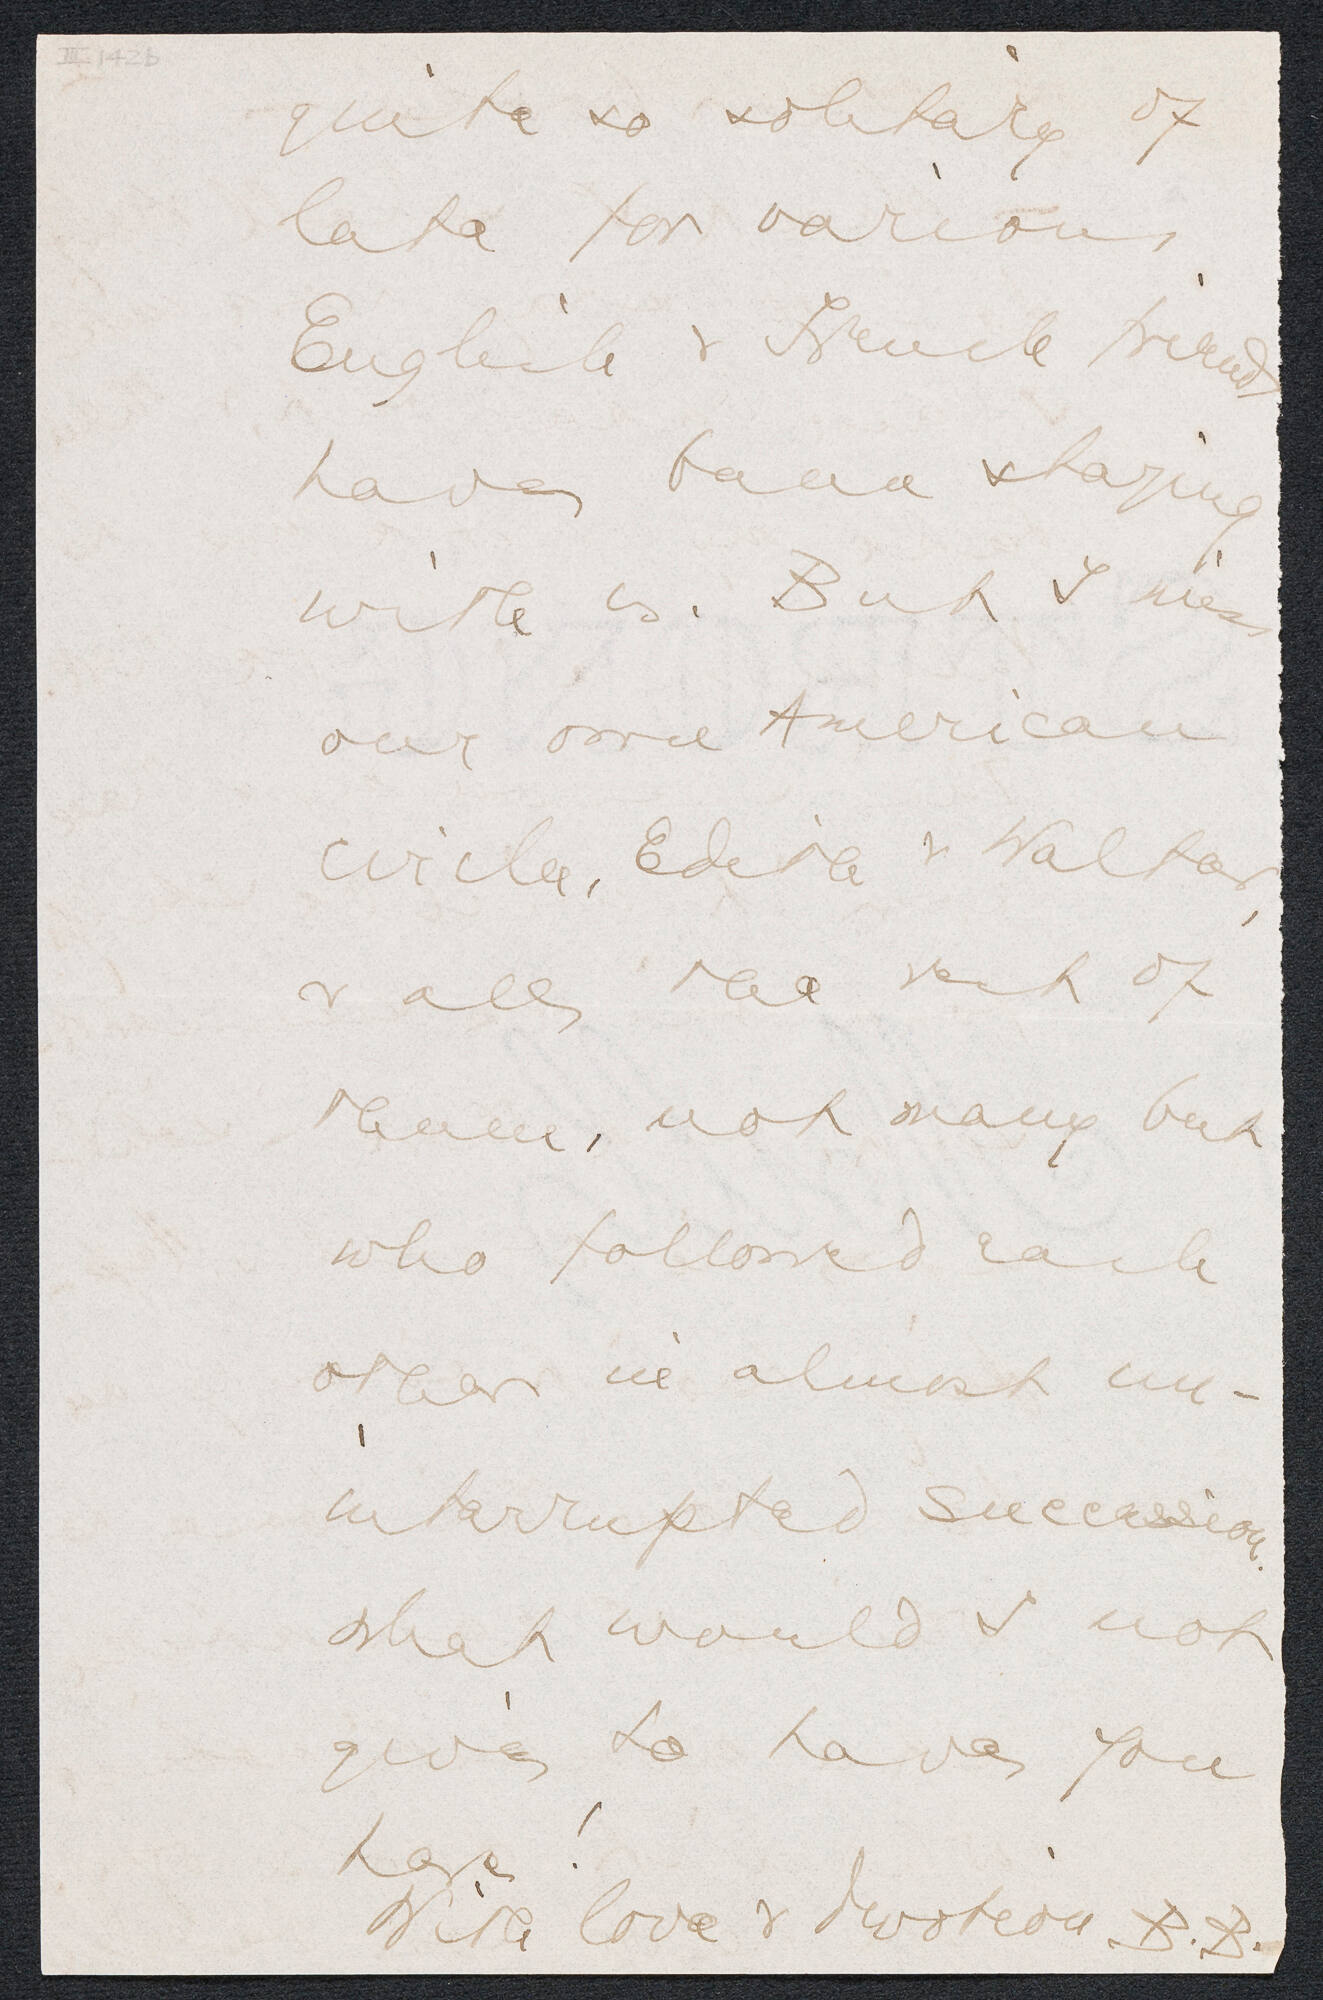 III 142b
quite so solitary of
late for various
English & French friends
have been staying
with us. But I miss
our own American
circle, Edith & Walter,
& all the rest of
them, not many but
who followed each
other in almost un-
interrupted succession.
What would I not
give to have you
here!
With love & devotion B.B.